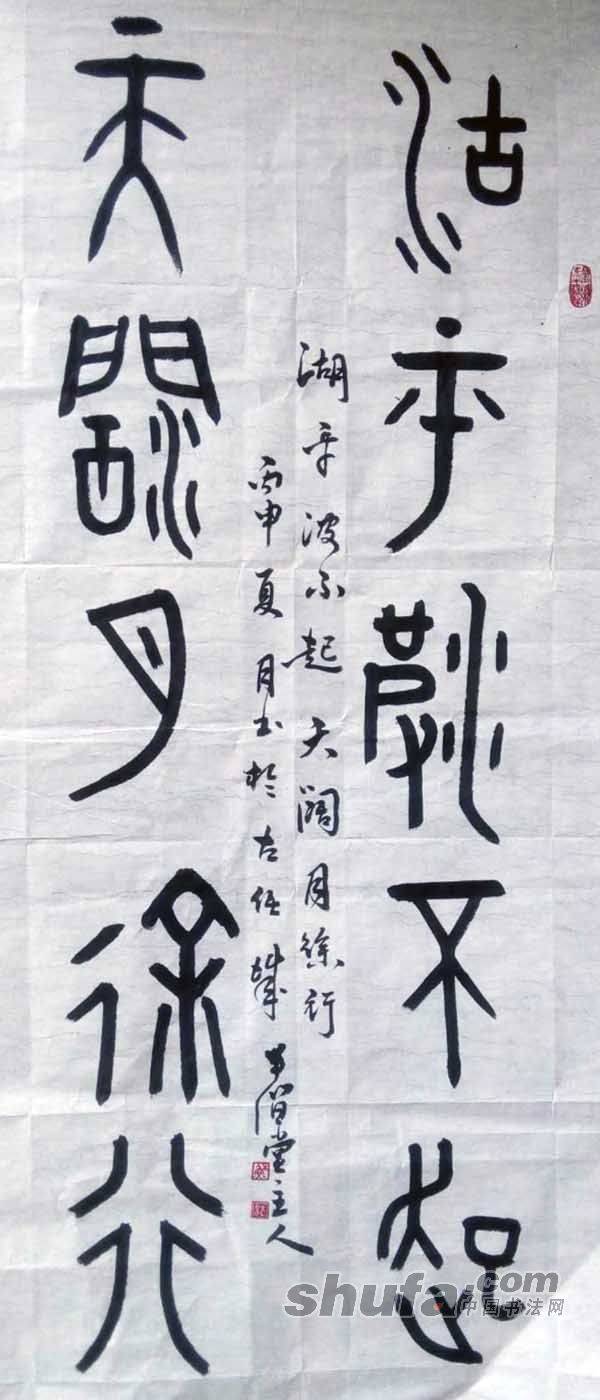 湖平波不起
湖平波不起 天阔月徐行
丙申夏月书於古伍城 堂主人
天闊月徐行
shufa.com
中国书法网